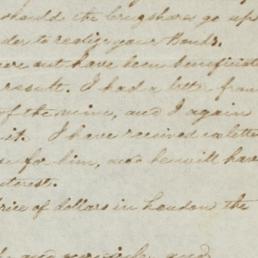 should the exchange go up
order to realize your Bonds.
were out have been beneficial
results. I had a letter from
of the mine, and I again
it. I have received a letter
for him, and he will have
interest.
price of dollars in London the
and